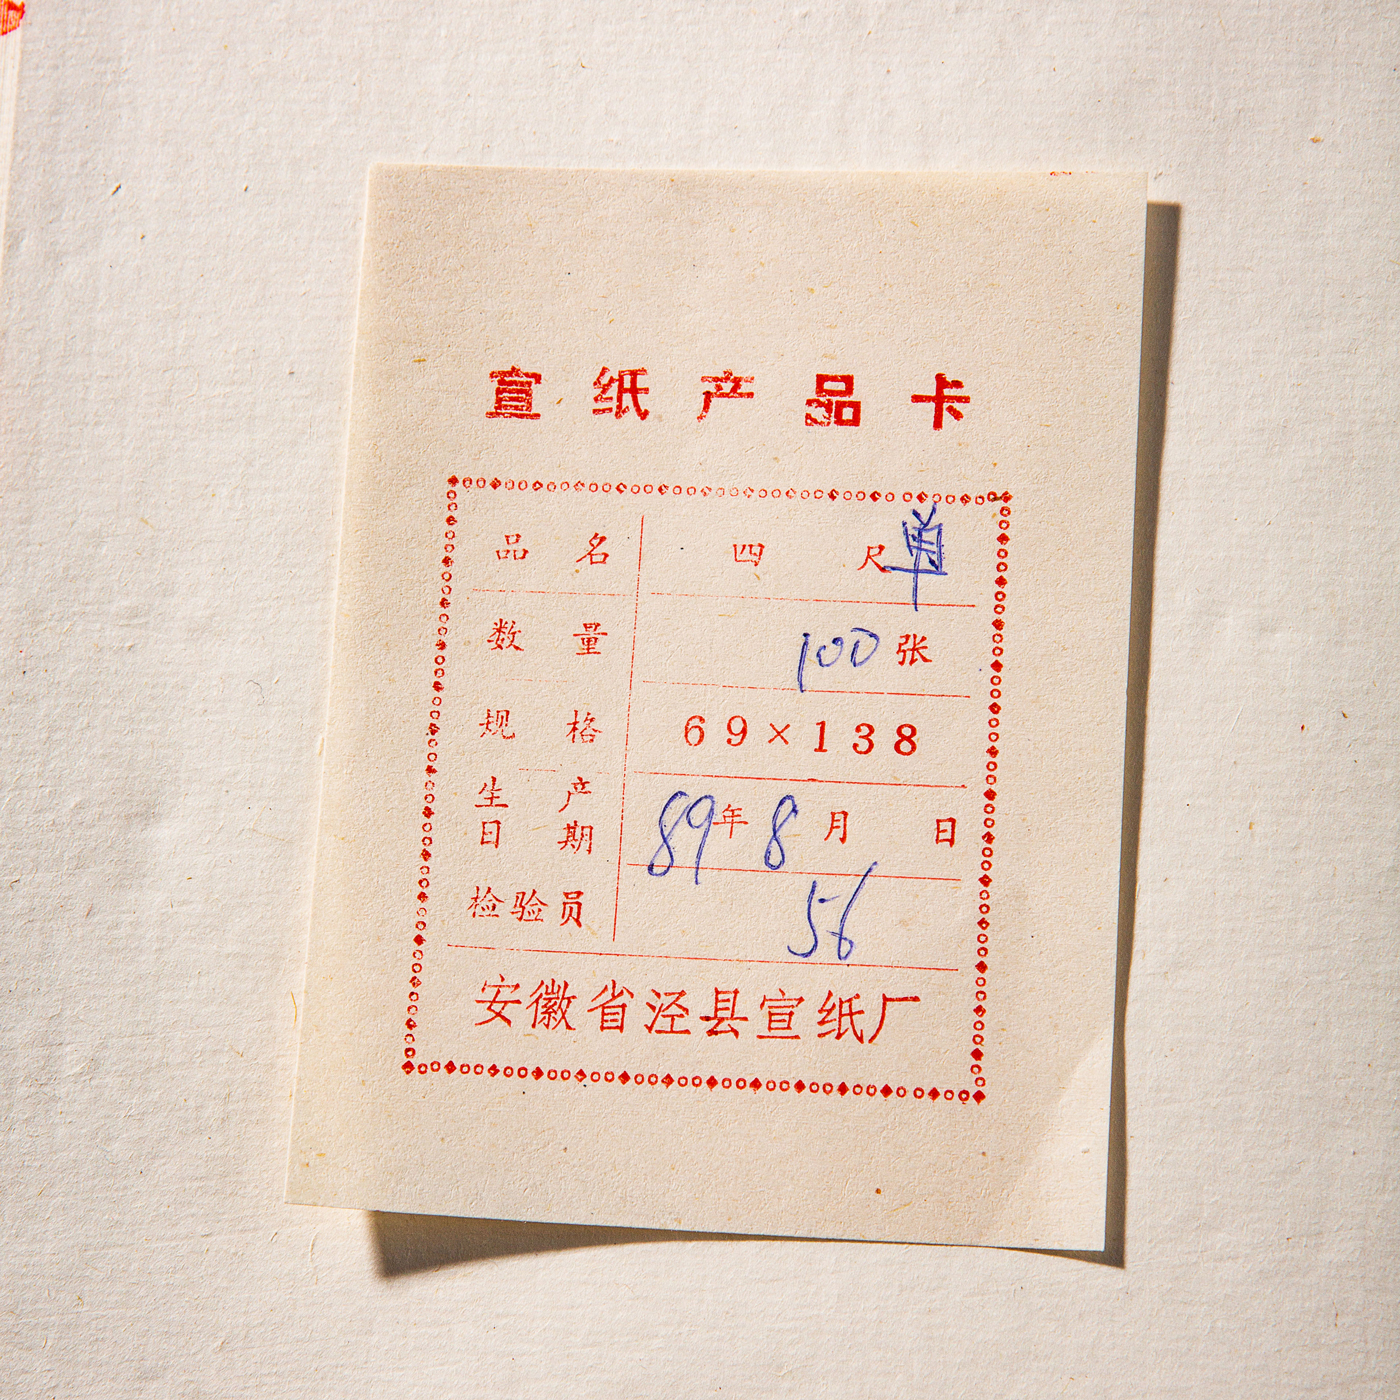 宣纸产品卡
品名 四尺单
数量 100张
规格 69×138
生产日期 89年8月 日
检验员 56
安徽省泾县宣纸厂